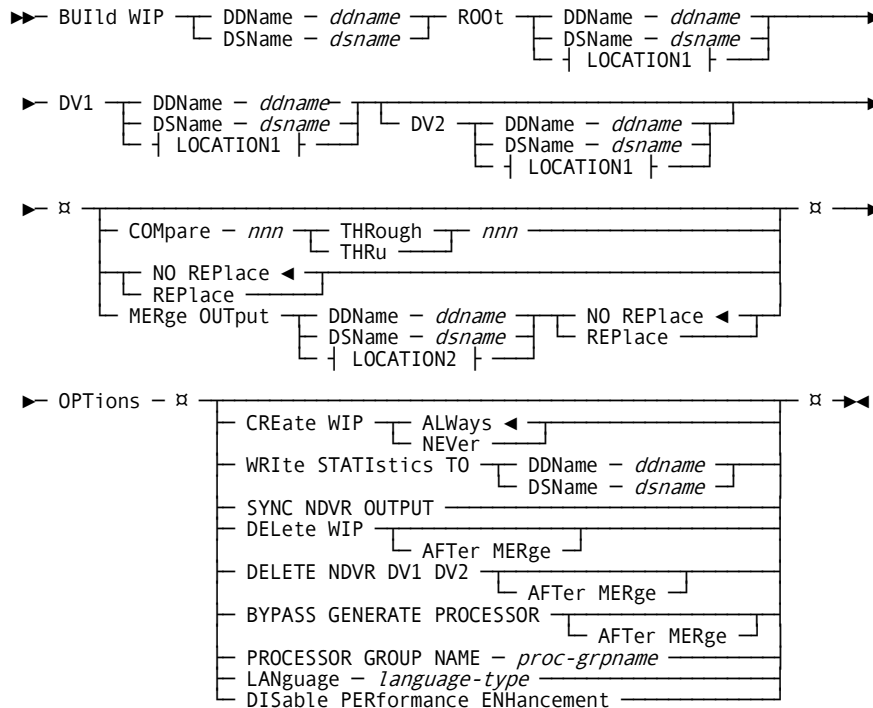 ►►─ BUIld WIP ─┬─ DDName ─ ddname ─┬─ ROOt ─┬─ DDName ─ ddname ─┬─►
└─ DSName ─ dsname ─┘ ├─ DSName ─ dsname ─┤
└─ ┤ LOCATION1 ├ ───┘
►─ DV1 ─┬─ DDName ─ ddname ─┬─┬─────────────────────────────┬─►
├─ DSName ─ dsname ─┤ └─ DV2 ─┬─ DDName ─ ddname ─┬─┘
└─ ┤ LOCATION1 ├ ───┘ ├─ DSName ─ dsname ─┤
└─ ┤ LOCATION1 ├ ───┘
►─ ¤ ─┬──────────────────────────────────────────┬─ ¤ ─►
├─ COMpare ─ nnn ─┬─ THRough ─┬─ nnn ─┤
└─ THRu ────┘
├─┬─ NO REPlace ◄ ─┬─┤
└─ REPlace ──────┘
└─ MERge OUTput ─┬─ DDName ─ ddname ─┬─┬─ NO REPlace ◄ ─┬─┘
├─ DSName ─ dsname ─┤ └─ REPlace ──────┘
└─ ┤ LOCATION2 ├ ───┘
►─ OPTions ─ ¤ ─┬──────────────────────────────────────────┬─ ¤ ─►◄
├─ CREate WIP ─┬─ ALWays ◄ ─┬─┤
└─ NEVer ────┘
├─ WRIte STATIstics TO ─┬─ DDName ─ ddname ─┬─┤
└─ DSName ─ dsname ─┘
├─ SYNC NDVR OUTPUT ─┤
├─ DELete WIP ─┬───────────────┬─┤
└─ AFTer MERge ─┘
├─ DELETE NDVR DV1 DV2 ─┬───────────────┬─┤
└─ AFTer MERge ─┘
├─ BYPASS GENERATE PROCESSOR ─┬───────────────┬─┤
└─ AFTer MERge ─┘
├─ PROCESSOR GROUP NAME ─ proc-grpname ─┤
├─ LANguage ─ language-type ─┤
└─ DISable PERformance ENHancement ─┘